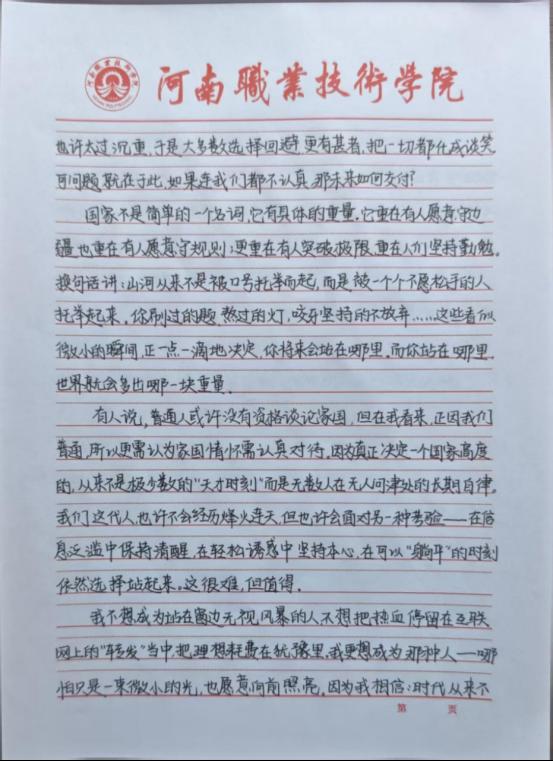 河南職業技術學院
也许太过沉重，于是大多数选择回避，更有甚者，把一切都化成谈笑
可问题就在于此，如果连我们都不认真，那未来如何交付？
国家不是简单的一个名词，它有具体的重量。它重在有人愿意守边
疆也重在有人愿意守规则；更重在有人突破极限，重在人们坚持勤勉。
换句话讲：山河从来不是被口号托举而起，而是被一个个不愿松手的人
托举起来。你刷过的题，熬过的灯，咬牙坚持的不放弃……这些看似
微小的瞬间，正一点一滴地决定，你将来会站在哪里。而你站在哪里，
世界就会多出哪一块重量。
有人说，普通人或许没有资格谈论家国，但在我看来，正因我们
普通，所以更需认为家国情怀需认真对待。因为真正决定一个国家高度
的，从来不是极少数的“天才时刻”而是无数人在无人问津处的长期自律。
我们这代人，也许不会经历烽火连天，但也许会面对另一种考验——在信
息泛滥中保持清醒，在轻松诱惑中坚持本心，在可以“躺平”的时刻
依然选择站起来。这很难，但值得。
我不想成为站在窗边无视风暴的人不想把热血停留在互联
网上的“转发”当中，把理想耗费在犹豫里，我更想成为那种人——哪
怕只是一束微小的光，也愿意向前照亮。因为我相信：时代从来不
第 页